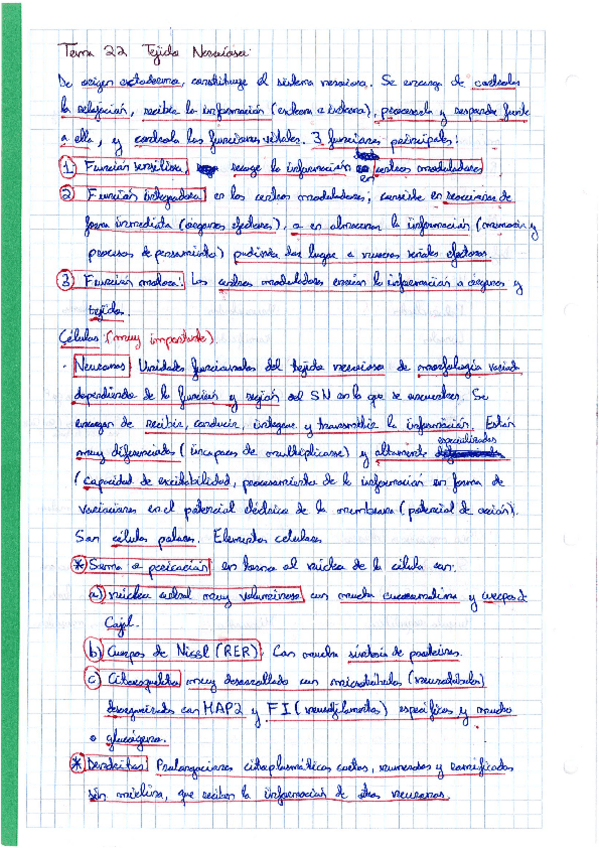 Tema 22 Tejido Nervioso:
De origen ectodermo, constituye el sistema nervioso. Se encarga de controlar
la relajación, recibir la información (entrar a extrema), procesarla y responde frente
a ella, y controla las funciones vitales. 3 funciones principales:
1 Función sensitiva: recoge la información en centros moduladores
2 Función integradora: en los centros moduladores, consiste en reaccionar de
forma inmediata (órganos efectores), o en almacenar la información (memoria y
procesos de pensamiento) pudiendo dar lugar a nuevas señales efectoras.
3 Función motora: Los centros moduladores envían la información a órganos y
tejidos.
Células: (muy importante).
· Neuronas: Unidades funcionales del tejido nervioso de morfología variada
dependiendo de la función y región del SN en la que se encuentren. Se
encargan de recibir, conducir, integrar y transmitir la información. Están
muy diferenciadas (incapaces de multiplicarse) y altamente especializadas
(capacidad de excitabilidad, procesamiento de la información en forma de
variaciones en el potencial eléctrico de la membrana (potencial de acción).
Son células polares. Elementos celulares
* Soma o pericarion: en torno al núcleo de la célula con:
a) núcleo central muy voluminoso con mucha eucromatina y cuerpos d
Cajal.
b) Cuerpos de Nissl (RER). Con mucha síntesis de proteínas.
c) Citoesqueleto muy desarrollado con microtúbulos (neurotúbulos)
desorganizados con MAP2 y FI (neurofilamentos) específicos y mucho
glucógeno.
* Dendritas: Prolongaciones citoplasmáticas cortas, numerosas y ramificadas
sin mielina, que reciben la información de otras neuronas.